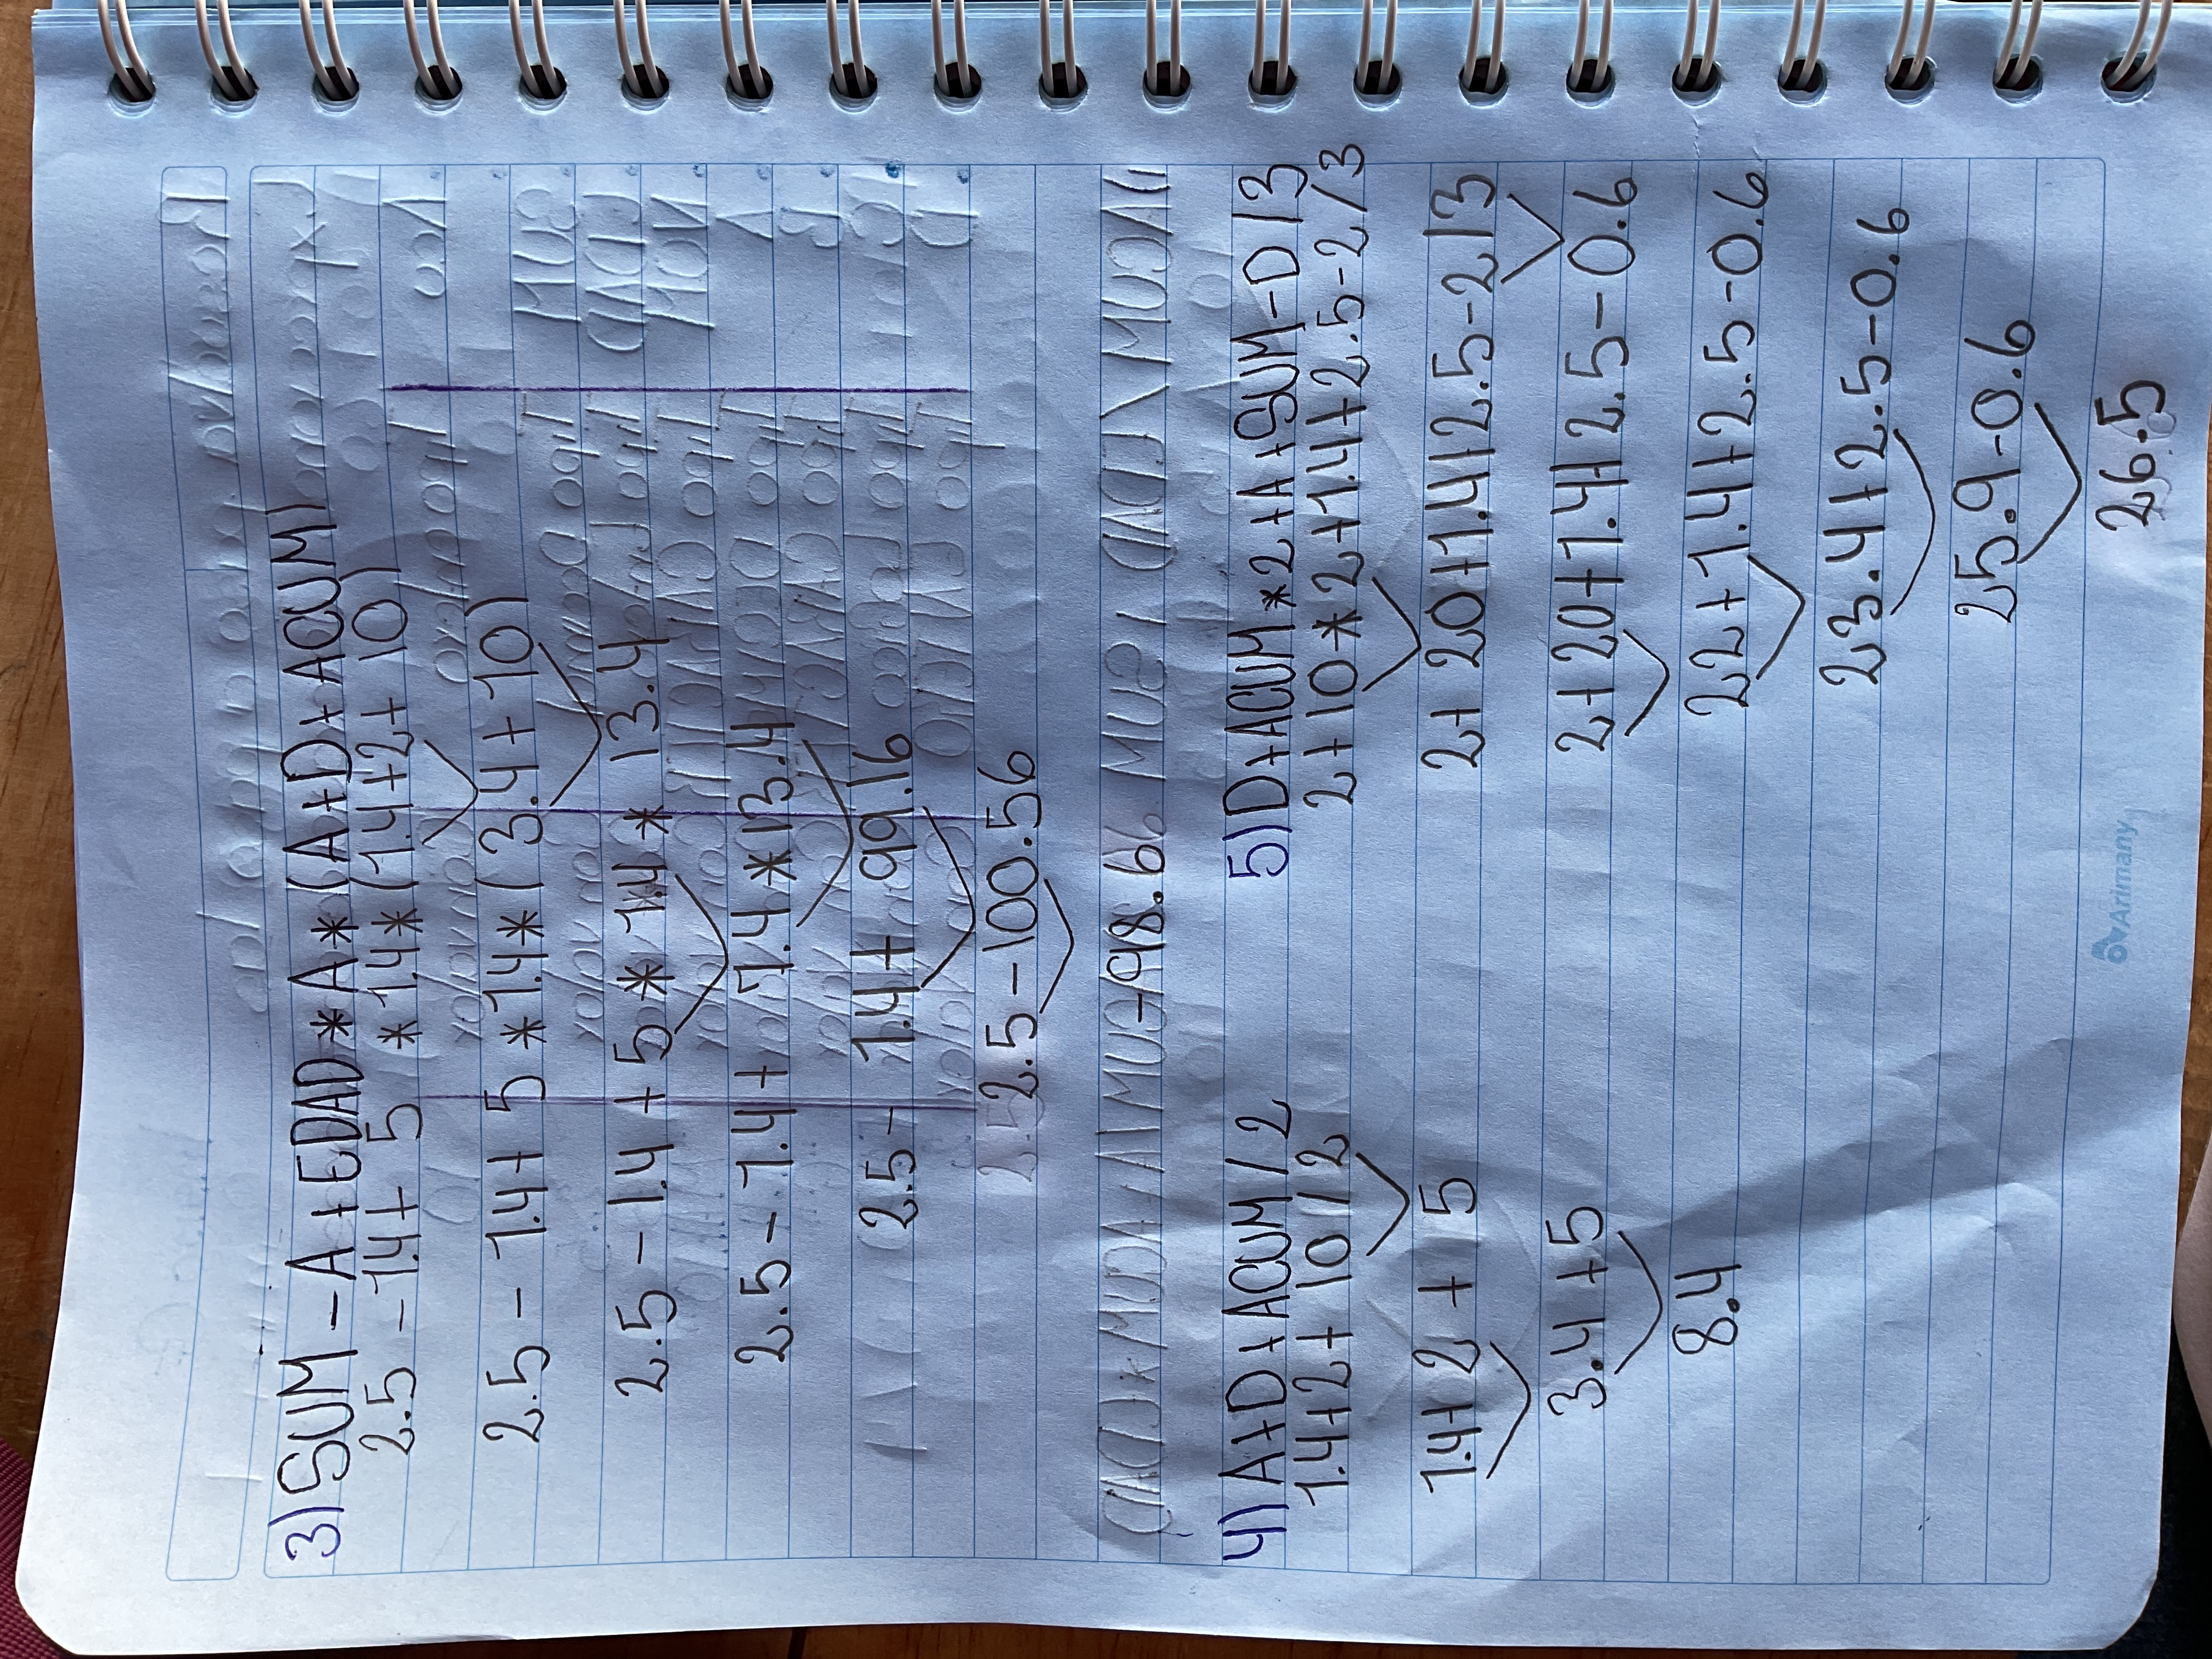 3) SUM - A + EDAD * A * (A + D + ACUM)
2.5 - 1.4 + 5 * 1.4 * (1.4 + 2 + 10)
2.5 - 1.4 + 5 * 1.4 * (3.4 + 10)
2.5 - 1.4 + 5 * 1.4 * 13.4
2.5 - 1.4 + 7.4 * 13.4
2.5 - 1.4 + 99.16
2.5 - 100.56
-98.6
4) A + D + ACUM / 2
1.4 + 2 + 10 / 2
1.4 + 2 + 5
3.4 + 5
8.4
5) D + ACUM * 2 + A + SUM - D / 3
2 + 10 * 2 + 1.4 + 2.5 - 2 / 3
2 + 20 + 1.4 + 2.5 - 2 / 3
2 + 20 + 1.4 + 2.5 - 0.6
22 + 1.4 + 2.5 - 0.6
23.4 + 2.5 - 0.6
25.9 - 0.6
26.5
Arimany